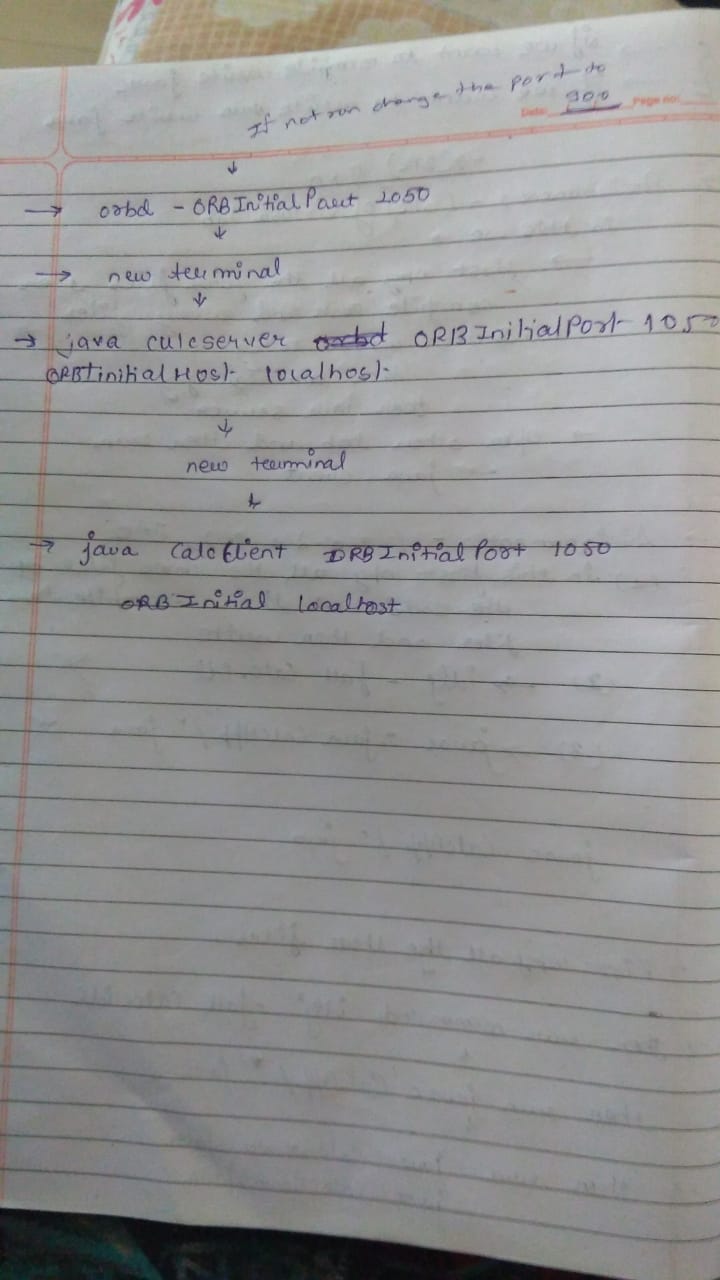 If not run change the port to
900
Date: Page no:
↓
→ orbd - ORBInitialPort 1050
↓
→ new terminal
↓
→ java calcserver ORBInitialPort 1050
ORBIinitialHost localhost
↓
new terminal
↓
→ java CalcClient ORBInitialPort 1050
ORBInitial localhost